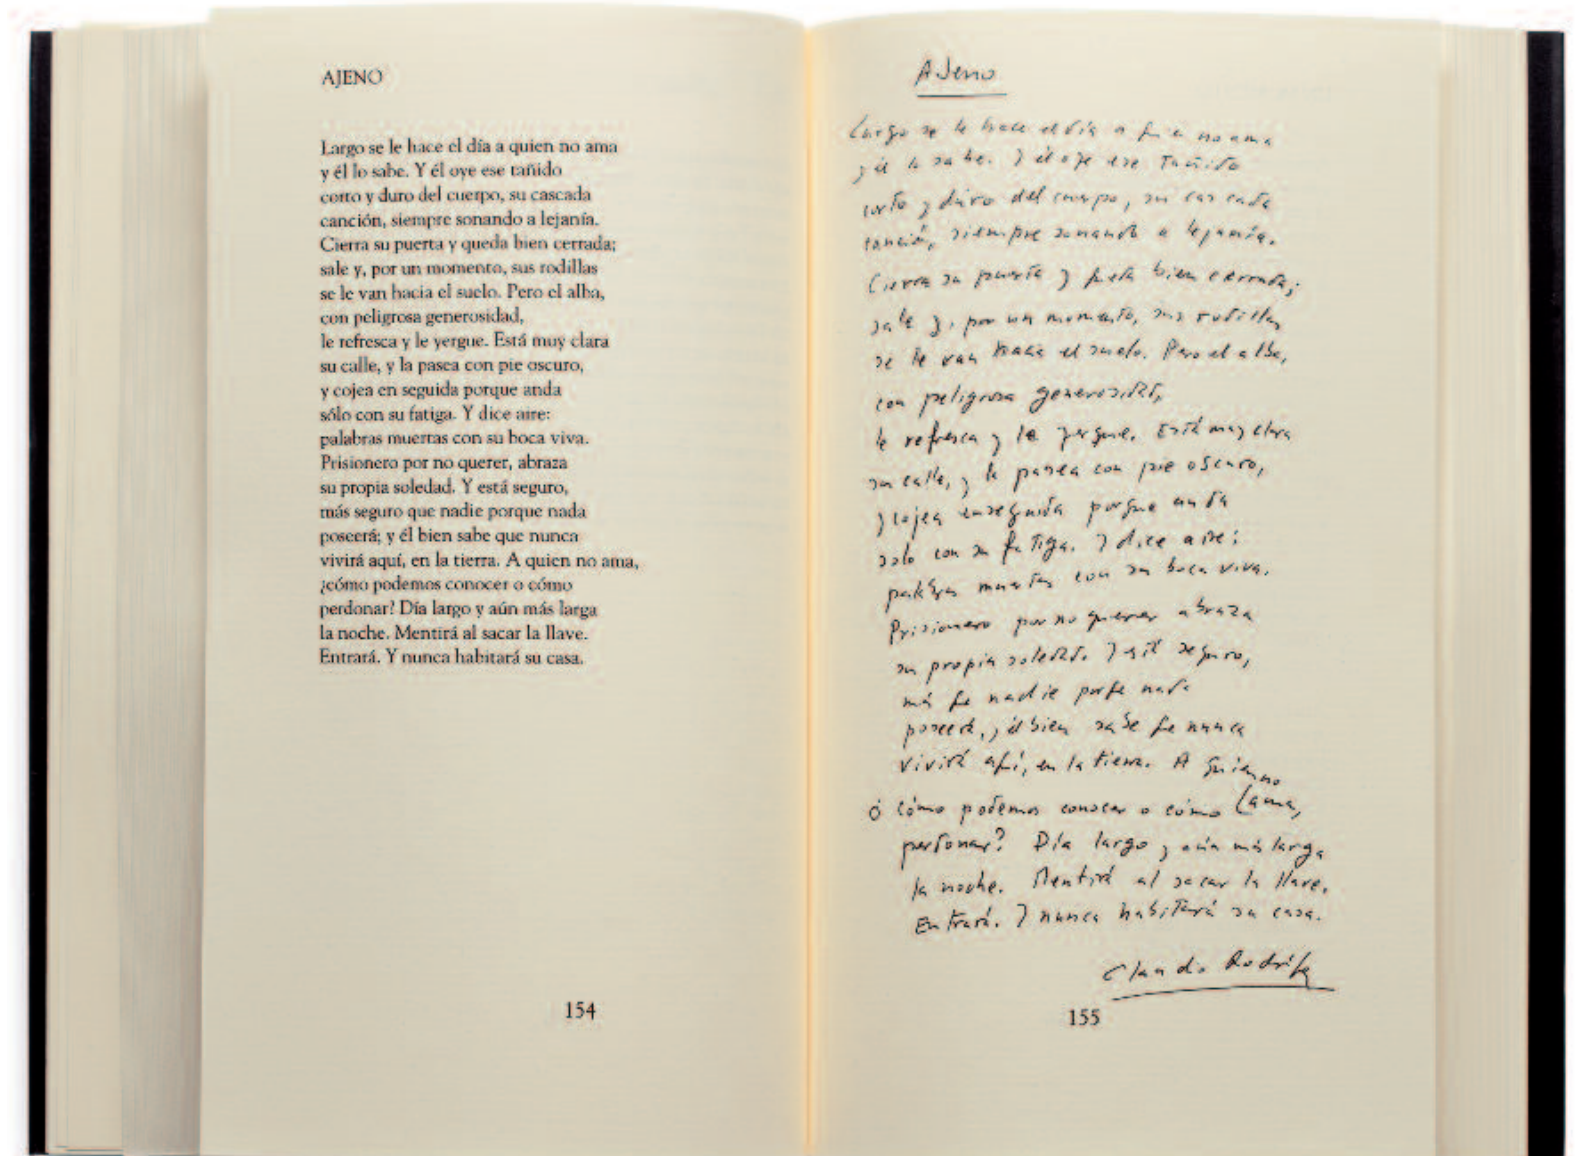 AJENO
Largo se le hace el día a quien no ama
y él lo sabe. Y él oye ese tañido
corto y duro del cuerpo, su cascada
canción, siempre sonando a lejanía.
Cierra su puerta y queda bien cerrada;
sale y, por un momento, sus rodillas
se le van hacia el suelo. Pero el alba,
con peligrosa generosidad,
le refresca y le yergue. Está muy clara
su calle, y la pasea con pie oscuro,
y cojea en seguida porque anda
sólo con su fatiga. Y dice aire:
palabras muertas con su boca viva.
Prisionero por no querer, abraza
su propia soledad. Y está seguro,
más seguro que nadie porque nada
poseerá; y él bien sabe que nunca
vivirá aquí, en la tierra. A quien no ama,
¿cómo podemos conocer o cómo
perdonar? Día largo y aún más larga
la noche. Mentirá al sacar la llave.
Entrará. Y nunca habitará su casa.
154
Ajeno
Largo se le hace el día a quien no ama
y él lo sabe. Y él oye ese tañido
corto y duro del cuerpo, su cascada
canción, siempre sonando a lejanía.
Cierra su puerta y queda bien cerrada;
sale y, por un momento, sus rodillas
se le van hacia el suelo. Pero el alba,
con peligrosa generosidad,
le refresca y le yergue. Está muy clara
su calle, y la pasea con pie oscuro,
y cojea enseguida porque anda
solo con su fatiga. Y dice aire:
palabras muertas con su boca viva.
Prisionero por no querer abraza
su propia soledad. Y está seguro,
más que nadie porque nada
poseerá, y él bien sabe que nunca
vivirá aquí, en la tierra. A quien no
ama,
¿cómo podemos conocer o cómo
perdonar? Día largo y aún más larga
la noche. Mentirá al sacar la llave.
Entrará. Y nunca habitará su casa.
Claudio Rodríguez
155